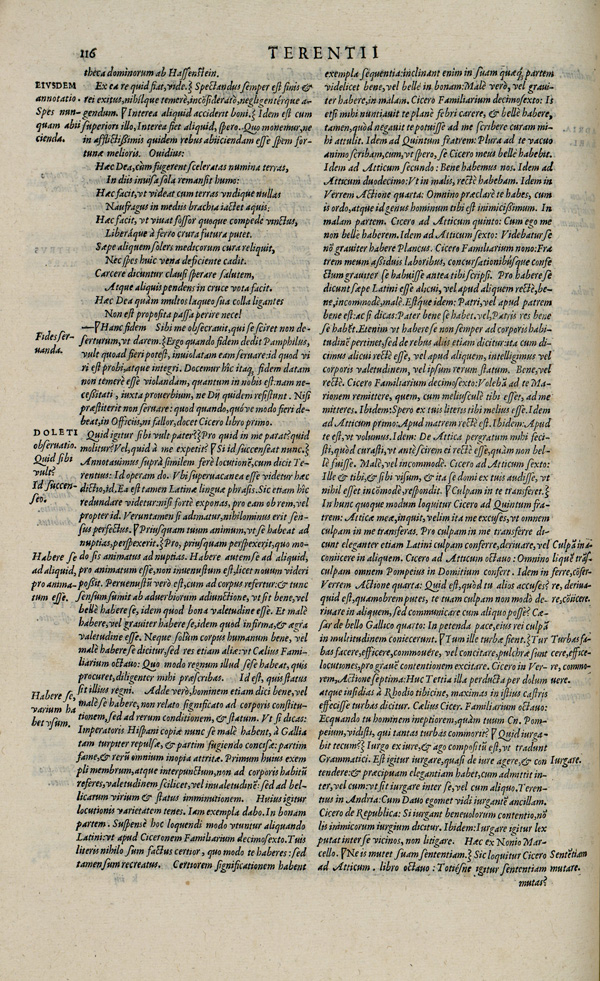 116
TERENTII
theca dominorum ab Hassenstein.
EIVSDEM
annotatio.
Spes nun-
quam abii
cienda.
Ex ea re quid fiat, vide.] Spectandus semper est finis &
rei exitus, nihilque temerè, incōsideratè, negligentérque a-
gendum. [Interea aliquid accident boni.] Idem est cum
superiori illo, Interea fiet aliquid, spero. Quo monemur, ne
in afflictissimis quidem rebus abiiciendam esse spem for-
tunæ melioris. Ouidius:
Hæc Dea, cùm fugerent sceleratas numina terras,
In diis inuisa sola remansit humo:
Hæc facit, vt videat cum terras vndique nullas
Naufragus in mediis brachia iactet aquis:
Hæc facit, vt viuat fossor quoque compede vinctus,
Liberáque à ferro crura futura putet.
Sæpe aliquem solers medicorum cura reliquit,
Nec spes huic vena deficiente cadit.
Carcere dicuntur clausi sperare salutem,
Atque aliquis pendens in cruce vota facit.
Hæc Dea quàm multos laqueo sua colla ligantes
Non est proposita passa perire nece!
Fides ser-
uanda.
[Hanc fidem Sibi me obsecrauit, qui se sciret non de-
serturum, vt darem.] Ergo quando fidem dedit Pamphilus,
vult quoad fieri potest, inuiolatam eam seruare: id quod vi
ri est probi, atque integri. Docemur hîc itaq; fidem datam
non temerè esse violandam, quantum in nobis est: nam ne-
cessitati, iuxta prouerbium, ne Dij quidem resistunt. Nisi
præstiterit non seruare: quod quando, quóve modo fieri de-
beat, in Officiis, ni fallor, docet Cicero libro primo.
DOLETI
obseruatio.
Quid sibi
vult?
Id succen-
seo.
Quid igitur sibi vult pater?] Pro quid in me parat? quid
molitur? Vel, quid à me expetit? [Si id succenseat nunc.]
Annotauimus suprà similem ferè locutionē, cum dicit Te-
rentius: Id operam do. Vbi superuacanea esse videtur hæc
dictio, id, Ea est tamen Latinæ linguæ phrasis. Sic etiam hîc
redundare videtur: nisi fortè exponas, pro eam ob rem, vel
propter id. Veruntamen si adimatur, nihilominus erit sen-
sus perfectus. [Priusquam tuum animum, vt se habeat ad
nuptias, perspexerit.] Pro, priusquam perspexerit, quo mo-
Habere se
ad aliquid,
pro anima-
tum esse.
do sis animatus ad nuptias. Habere autem se ad aliquid,
pro animatum esse, non inuenustum est, licet nouum videri
possit. Peruenustū verò est, cum ad corpus refertur: & tunc
sensum sumit ab aduerbiorum adiunctione, vt sit bene, vel
bellè habere se, idem quod bona valetudine esse. Et malè
habere, vel grauiter habere se, idem quod infirma, & ægra
valetudine esse. Neque solùm corpus humanum bene, vel
malè habere se dicitur, sed res etiam aliæ: vt Cælius Fami-
liarium octauo: Quo modo regnum illud sese habeat, quis
procuret, diligenter mihi præscribas. Id est, quis status
sit illius regni.
Habere se,
varium ha
bet vsum.
Adde verò, hominem etiam dici bene, vel
malè se habere, non relato significato ad corporis constitu-
tionem, sed ad rerum conditionem, & statum. Vt si dicas:
Imperatoris Hispani copiæ nunc se malè habent, à Gallia
tam turpiter repulsæ, & partim fugiendo concisæ: partim
fame, & rerū omnium inopia attritæ. Primum huius exem
pli membrum, atque interpunctum, non ad corporis habitū
referes, valetudinem scilicet, vel inualetudinē: sed ad bel-
licarum virium & status imminutionem. Huius igitur
locutionis varietatem tenes. Iam exempla dabo. In bonam
partem. Suspensè hoc loquendi modo vtuntur aliquando
Latini: vt apud Ciceronem Familiarium decimosexto. Tuis
literis nihilo sum factus certior, quo modo te haberes: sed
tamen sum recreatus. Certiorem significationem habent
exempla sequentia: inclinant enim in suam quæq; partem
videlicet bene, vel belle in bonam: Malè verò, vel graui-
ter habere, in malam. Cicero Familiarium decimosexto: Is
etsi mihi nuntiauit te planè febri carere, & bellè habere,
tamen, quòd negauit te potuisse ad me scribere curam mi-
hi attulit. Idem ad Quintum fratrem: Plura ad te vacuo
animo scribam, cum, vt spero, se Cicero meus bellè habebit.
Idem ad Atticum secundo: Bene habemus nos. Idem ad
Atticum duodecimo: Vt in malis, rectè habebam. Idem in
Verrem Actione quarta: Omnino præclarè te habes, cum
is ordo, atque id genus hominum tibi est inimicissimum. In
malam partem. Cicero ad Atticum quinto: Cum ego me
non bellè haberem. Idem ad Atticum sexto: Videbatur se
nō grauiter habere Plancus. Cicero Familiarium nono: Fra
trem meum assiduis laboribus, concursationibúsque confe
ctum grauiter se habuisse antea tibi scripsi. Pro habere se
dicunt sæpe Latini esse alicui, vel apud aliquem rectè, be-
ne, incommodè, malè. Estque idem: Patri, vel apud patrem
bene est: ac si dicas: Pater bene se habet. vel, Patris res bene
se habēt. Etenim vt habere se non semper ad corporis habi-
tudinē pertinet, sed de rebus aliis etiam dicitur: ita cum di-
cimus alicui rectè esse, vel apud aliquem, intelligimus vel
corporis valetudinem, vel ipsum rerum statum. Bene, vel
rectè. Cicero Familiarium decimosexto: Volebā ad te Ma-
rionem remittere, quem, cum meliusculè tibi esset, ad me
mitteres. Ibidem: Spero ex tuis literis tibi melius esse. Idem
ad Atticum primo: Apud matrem rectè est. Ibidem: Apud
te est, vt volumus. Idem: De Attica pergratum mihi feci-
sti, quòd curasti, vt antè scirem ei rectè esse, quàm non bel-
lè fuisse. Malè, vel incommodè. Cicero ad Atticum sexto:
Ille & tibi, & sibi visum, & ita se domi ex tuis audisse, vt
nihil esset incōmodè, respondit. [Culpam in te transferet.]
In hunc quoque modum loquitur Cicero ad Quintum fra-
trem: Atticæ meæ, inquit, velim ita me excuses, vt omnem
culpam in me transferas. Pro culpam in me transferre di-
cunt eleganter etiam Latini culpam conferre, deriuare, vel
coniicere in aliquem. Cicero ad Atticum octauo: Omnino
culpam omnem Pompeius in Domitium confert. Idem in
Verrem Actione quarta: Quid est, quòd tu alios accuses?
quid est, quamobrem putes, te tuam culpam non modò de-
riuare in aliquem, sed communicare cum aliquo posse? Cæ-
sar de bello Gallico quarto: In petenda pace, eius rei culpā
in multitudinem coniecerunt.
Culpā in a-
lique trās-
ferre, cōfer-
re, deriua-
re, cōiicere.
[Tum ille turbæ fient.] Tur
bas facere, efficere, commouere, vel concitare, pulchræ sunt
locutiones, pro grauē contentionem excitare. Cicero in Ver-
rem, Actione septima: Huc Tertia illa perducta per dolum
atque insidias à Rhodio tibicine, maximas in istius castris
effecisse turbas dicitur. Cælius Cicer. Familiarium octauo:
Ecquando tu hominem ineptiorem, quàm tuum Cn. Pom-
peium, vidisti, qui tantas turbas commorit?
Turbas fa-
cere, effice-
re, commo-
uere.
[Quid iurga-
bit tecum?] Iurgo ex iure, & ago compositū est, vt tradunt
Grammatici. Est igitur iurgare, quasi de iure agere, & con
tendere: & præcipuam elegantiam habet, cum admittit in-
ter, vel cum: vt sit iurgare inter se, vel cum aliquo. Teren-
tius in Andria: Cum Dauo egomet vidi iurgantē ancillam.
Cicero de Republica: Si iurgant beneuolorum contentio, nō
lis inimicorum iurgium dicitur. Ibidem: Iurgare igitur lex
putat inter se vicinos, non litigare. Hæc ex Nonio Mar-
cello.
Iurgare.
[Ne is mutet suam sententiam.] Sic loquitur Cicero
ad Atticum. libro octauo: Totiésne igitur sententiam
Sentētiam
mutare.
mutas?